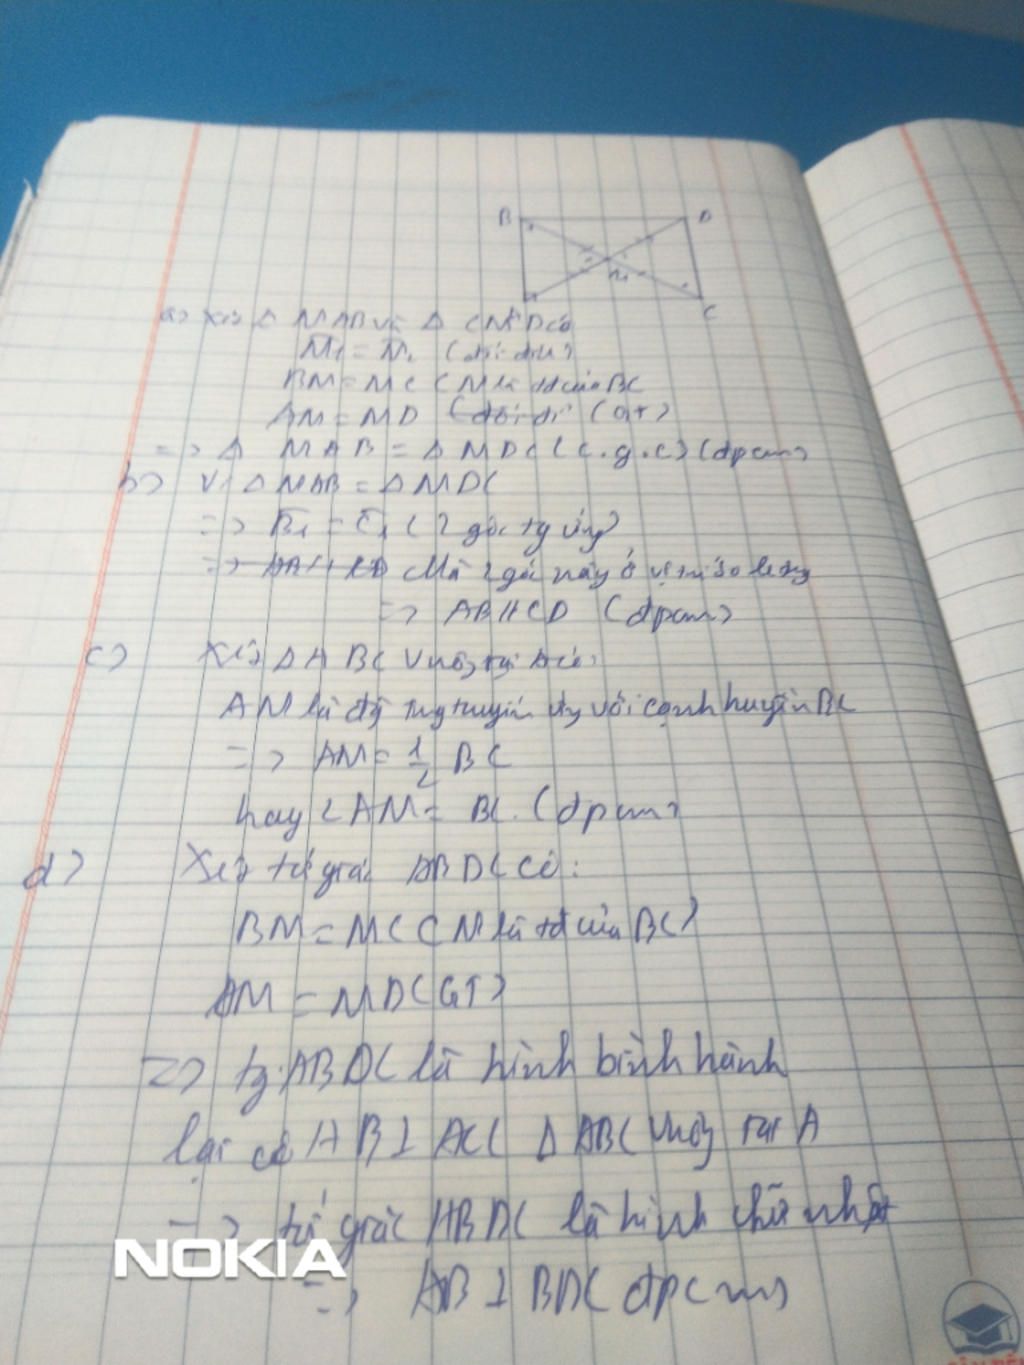 B D
M
C
a) Xét Δ MAB và Δ CMD có
M₁ = M₂ (đối đỉnh)
BM = MC (M là tđ của BC
AM = MD (GT)
=> Δ MAB = Δ MDC (c.g.c) (đpcm)
b) Vì Δ MAB = Δ MDC
=> B₁ = C₁ (2 góc tg ứng)
=> Mà 2 góc này ở vị trí so le trong
=> AB // CD (đpcm)
c) Xét Δ ABC vuông tại A có:
AM là đg trung tuyến ứng với cạnh huyền BC
=> AM = 1/2 BC
hay 2AM = BC. (đpcm)
d) Xét tứ giác ABDC có:
BM = MC (M là tđ của BC)
AM = MD (GT)
=> tg ABDC là hình bình hành
lại có AB ⊥ AC ( Δ ABC vuông tại A
=> tứ giác ABDC là hình chữ nhật
NOKIA
=> AB ⊥ BD (đpcm)